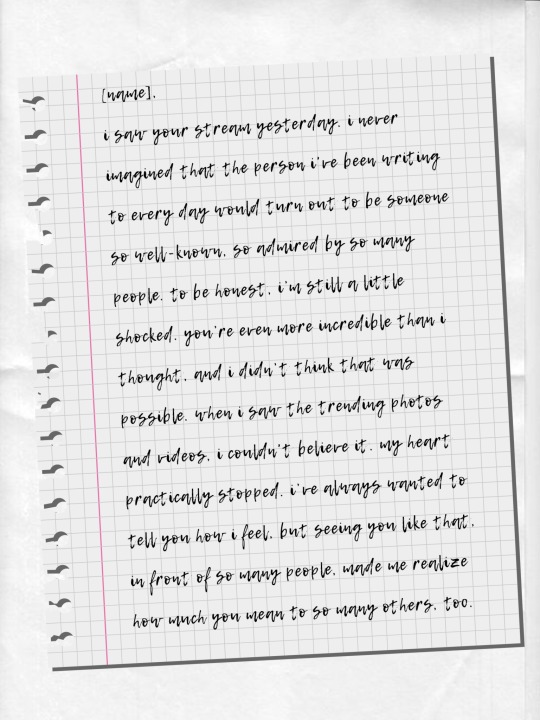 [name],
i saw your stream yesterday. i never
imagined that the person i've been writing
to every day would turn out to be someone
so well-known, so admired by so many
people. to be honest, i'm still a little
shocked. you're even more incredible than i
thought, and i didn't think that was
possible. when i saw the trending photos
and videos, i couldn't believe it. my heart
practically stopped. i've always wanted to
tell you how i feel, but seeing you like that,
in front of so many people, made me realize
how much you mean to so many others, too.